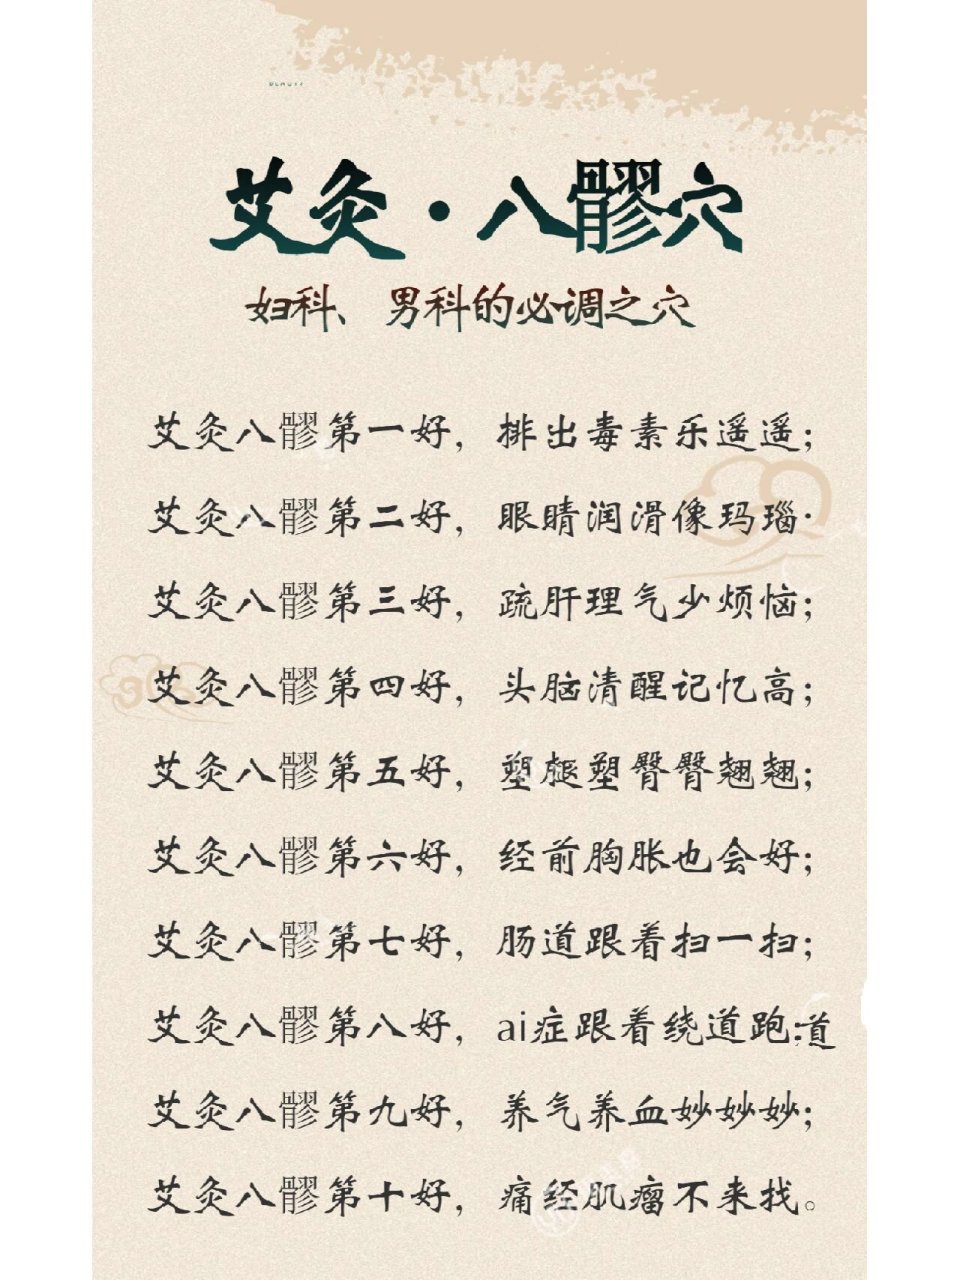 艾灸·八髎穴
妇科、男科的必调之穴
艾灸八髎第一好，排出毒素乐遥遥；
艾灸八髎第二好，眼睛润滑像玛瑙·
艾灸八髎第三好，疏肝理气少烦恼；
艾灸八髎第四好，头脑清醒记忆高；
艾灸八髎第五好，塑腿塑臀臀翘翘；
艾灸八髎第六好，经前胸胀也会好；
艾灸八髎第七好，肠道跟着扫一扫；
艾灸八髎第八好，ai症跟着绕道跑；道
艾灸八髎第九好，养气养血妙妙妙；
艾灸八髎第十好，痛经肌瘤不来找。